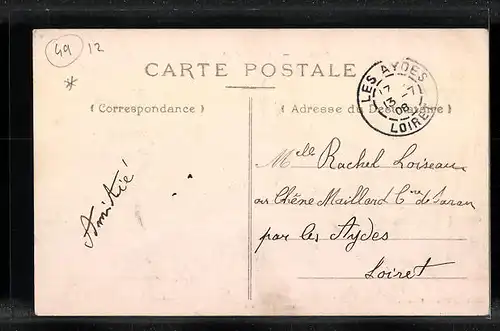 49 12
*
CARTE POSTALE
( Correspondance )
( Adresse du Destinataire )
LES AYDES
17 -7
13
08
LOIRET
Amitié
Mlle Rachel Loiseau
au Chêne Maillard Cne de Saran
par les Aydes
Loiret